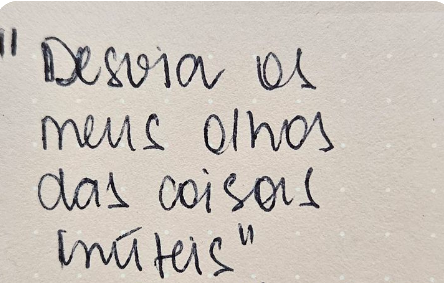 "Desvia os
meus olhos
das coisas
inúteis"